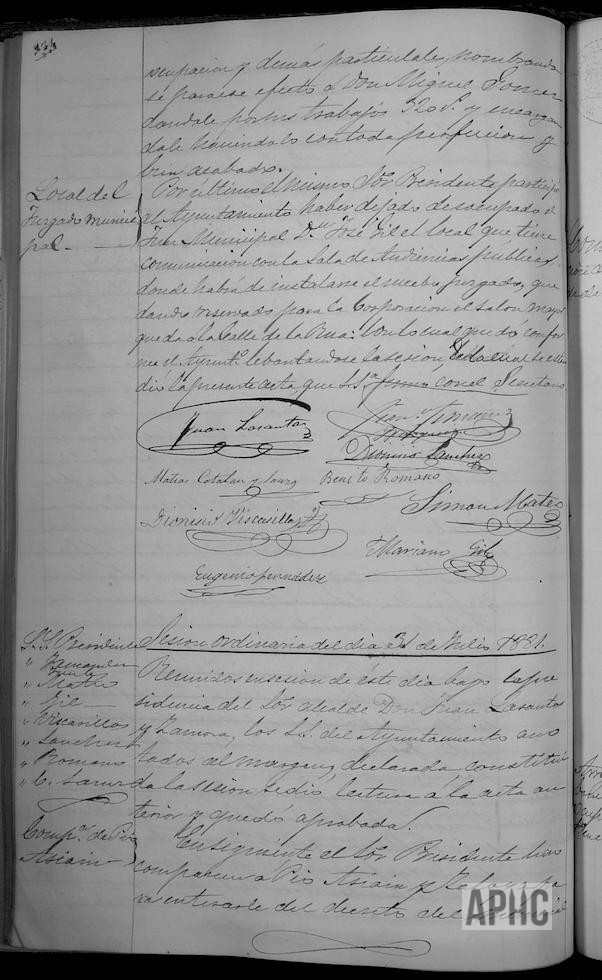 ocupacion y demás particulares, nombrando
se para ese efecto á Don Miguel Gomez
dandole por sus trabajos 320 y encargan
dole haciendolo con toda perfeccion y
bien acabado.
Local del
Juzgado munici
pal.
Por último el mismo Sor Presidente participó
al Ayuntamiento haber dejado desocupado el
Juez Municipal Dn José Gil el local que tiene
comunicacion con la Sala de Audiencias públicas
donde habra de instalarse el nuevo juzgado, que
dando reservado para la Corporacion el salon mayor
que da á la Calle de la Rua: Con lo cual quedó confor
me el Aynto levantandose la sesion, de la cual se esten
dió la presente acta, que S.Sa firmó con el Secretario
Juan Lasantas
Dionisio Sanchez
Matias Catalan y Sanz Benito Romano
Simon Mateo
Dionisio Viscasillas
Mariano Gil
Eugenio Fernandez
Sesion ordinaria del dia 31 de Julio 1881.
S.S. Presidente
" Mateo
" Gil
" Viscasillas
" Sanchez
" Romano
" C. Sanz
Reunidos en sesion de este dia bajo la pre
sidencia del Sor alcalde Don Juan Lasantas
y Zamora, los S.S. del Ayuntamiento ano
tados al margen, declarada constitui
da la sesion se dió lectura á la acta an
terior y quedó aprobada.
Compa de Pio
Asiain
Enseguida el Sor Presidente hizo
comparecer a Pio Asiain y pa
ra enterarle del decreto del
APHC